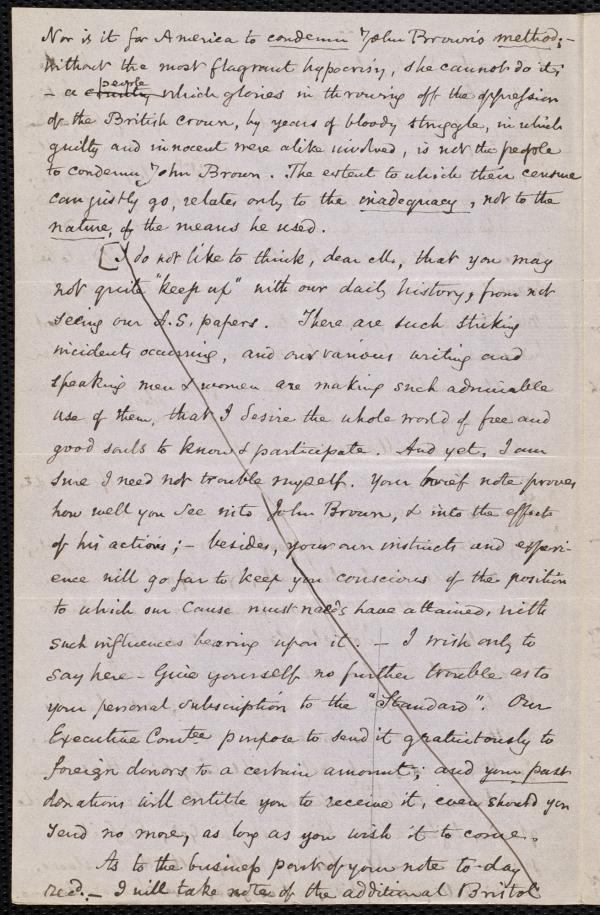 Nor is it for America to condemn John Brown's method;-
without the most flagrant hypocrisy, she cannot do it;
- a country people which glories in throwing off the oppression
of the British Crown, by years of bloody struggle, in which
guilty and innocent were alike involved, is not the people
to condemn John Brown. The extent to which their censure
can justly go, relates only to the inadequacy, not to the
nature, of the means he used.
[I do not like to think, dear Mo, that you may
not quite "keep up" with our daily history, from not
seeing our A.S. papers. There are such striking
incidents occurring, and our various writing and
speaking men & women are making such admirable
use of them, that I desire the whole world of free and
good souls to know & participate. And yet, I am
sure I need not trouble myself. Your brief note proves
how well you see into John Brown, & into the effects
of his actions; - besides, your own instincts and experi-
ence will go far to keep you conscious of the position
to which our Cause must needs have attained, with
such influences bearing upon it. - I wish only to
say here - Give yourself no further trouble as to
your personal subscription to the "Standard". Our
Executive Comtee purpose to send it gratuitously to
foreign donors to a certain amount; and your past
donations will entitle you to receive it, even should you
send no more, as long as you wish it to come.
As to the business part of your note to-day
recd. - I will take note of the additional Bristol